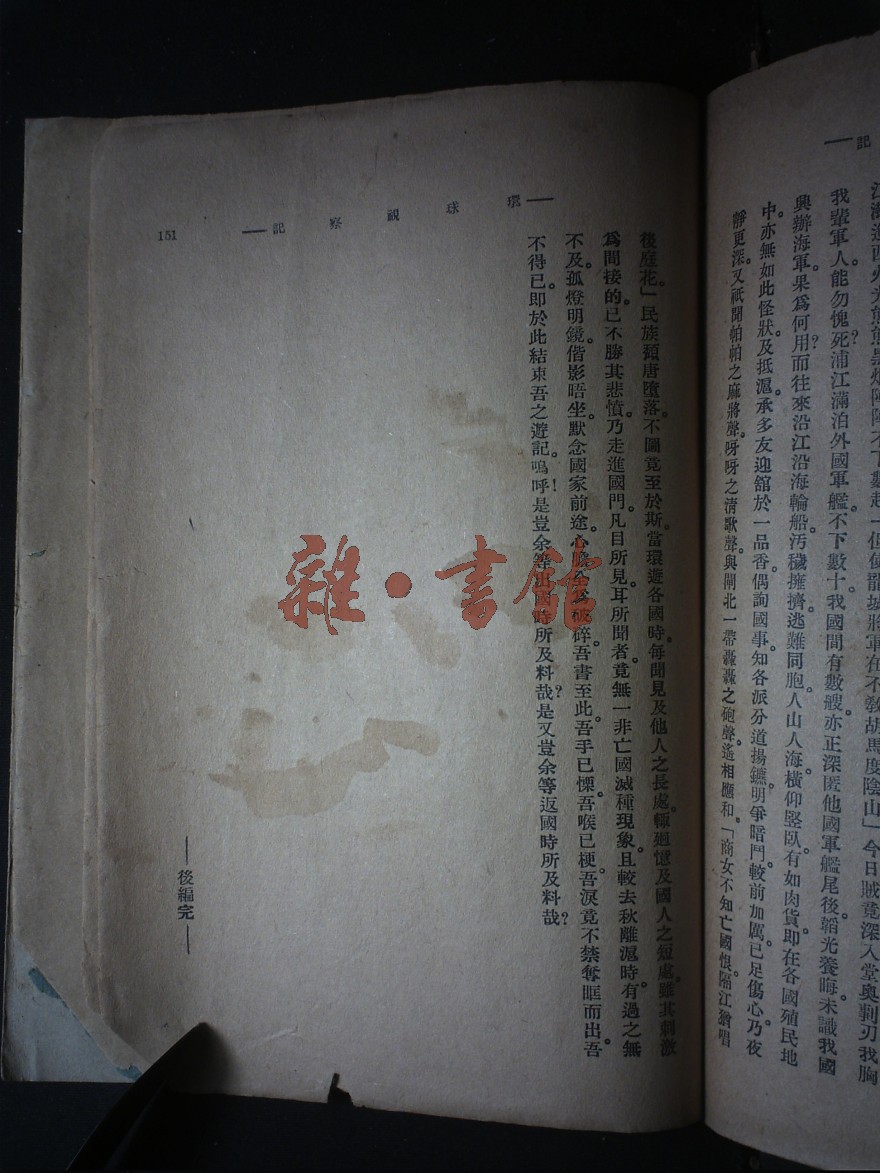 記
我輩軍人能勿愧死浦江滿泊外國軍艦不下數十我國間有數艘亦正深匿他國軍艦尾後韜光養晦未識我國
興辦海軍果爲何用而往來沿江沿海輪船汚穢擁擠逃難同胞人山人海橫仰豎臥有如肉貨即在各國殖民地
中。亦無如此怪狀及抵滬。承多友迎舘於一品香。偶詢國事知各派分道揚鑣。明爭暗鬥較前加厲已足傷心。乃夜
靜更深。又祇聞帕帕之麻將聲。呀呀之清歌聲。與閘北一帶轟轟之砲聲。遙相應和。「商女不知亡國恨。隔江猶唱
環球視察記
後庭花。」民族頹唐墮落。不圖竟至於斯。當環遊各國時。每聞見及他人之長處。輒廻憶及國人之短處。雖其刺激
爲間接的。已不勝其悲憤。乃走進國門。凡目所見耳所聞者。竟無一非亡國滅種現象。且較去秋離滬時有過之無
不及。孤燈明鏡。偕影晤坐。默念國家前途。心膽全爲破碎。吾書至此。吾手已慄。吾喉已梗。吾淚竟不禁奪眶而出。吾
不得已。即於此結束吾之遊記。嗚呼!是豈余等出國時所及料哉?是又豈余等返國時所及料哉?
後編完
151
雜·書館